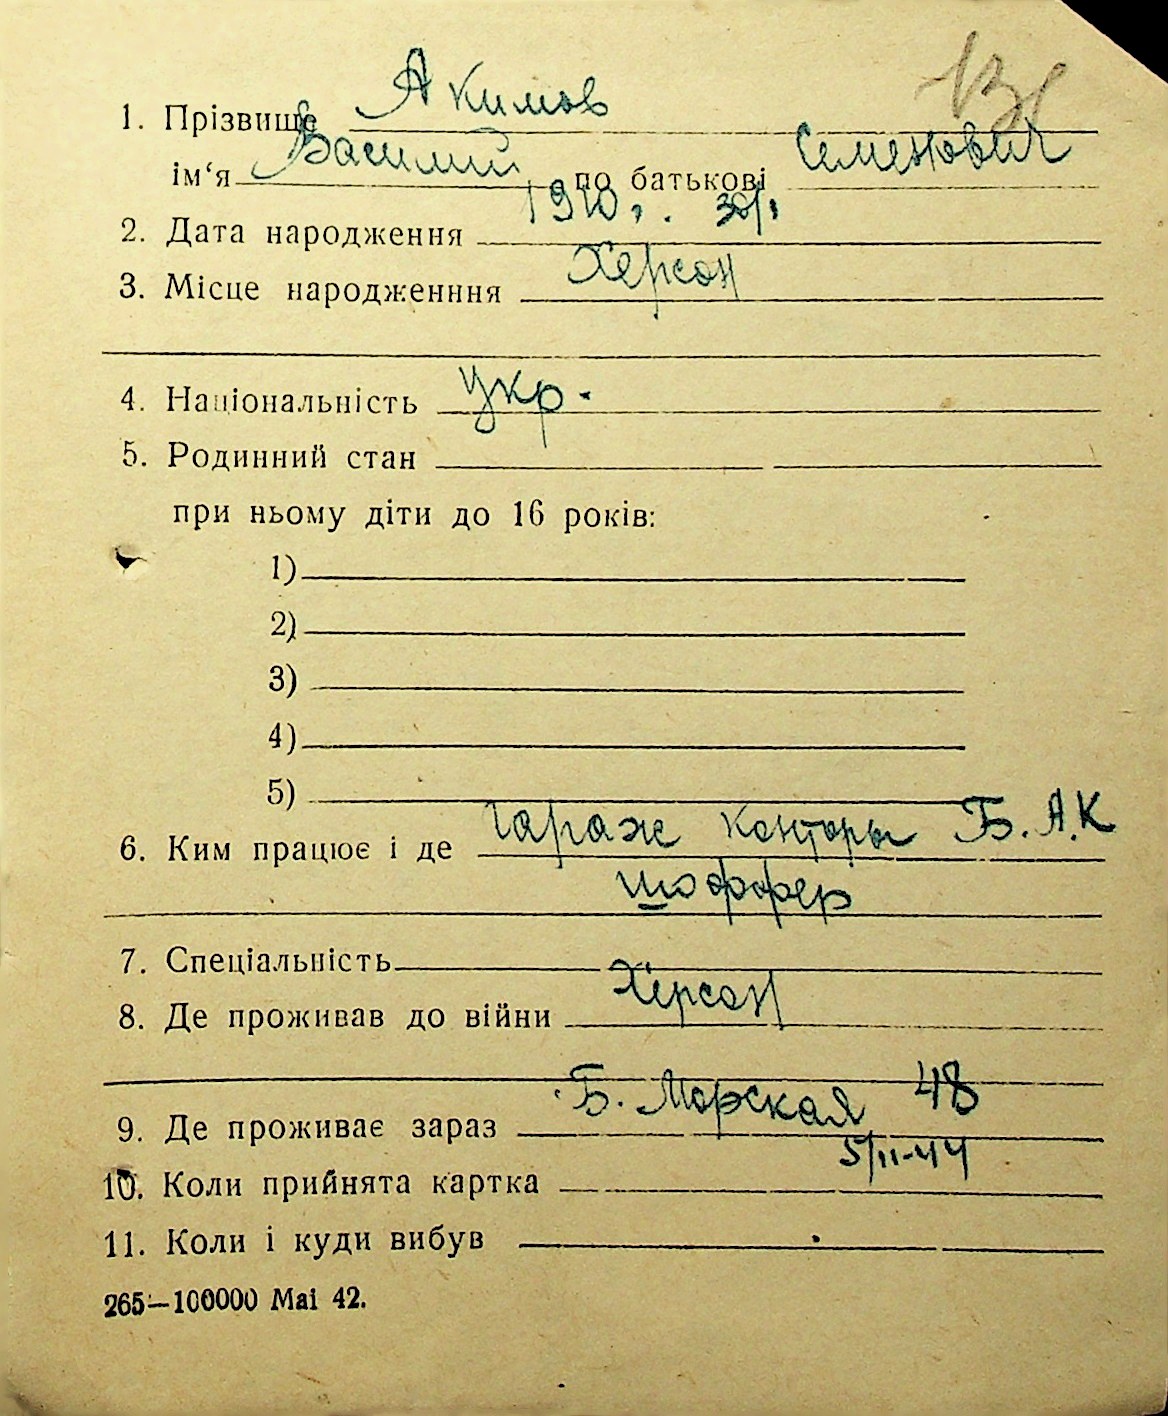 1. Прізвище Акимов
ім‘я Василий по батькові Семенович
2. Дата народження 1910 г. 30/I
3. Місце народженння Херсон
4. Національність Укр.
5. Родинний стан
при ньому діти до 16 років:
1)
2)
3)
4)
5)
6. Ким працює і де гараж конторы Б. А. К
шоффер
7. Спеціальність
8. Де проживав до війни Херсон
9. Де проживає зараз Б. Морская 48
10. Коли прийнята картка 5/II-44
11. Коли і куди вибув
265—100000 Mai 42.